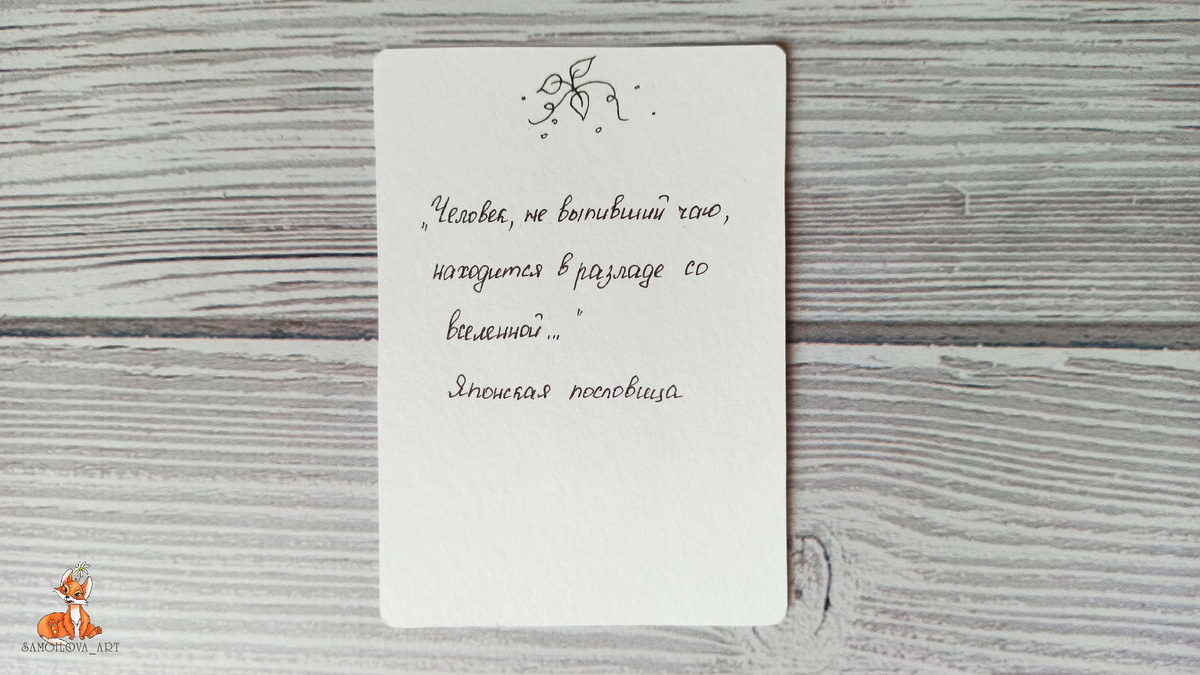 „Человек, не выпивший чаю,
находится в разладе со
вселенной..."
Японская пословица
SAMOILOVA_ART